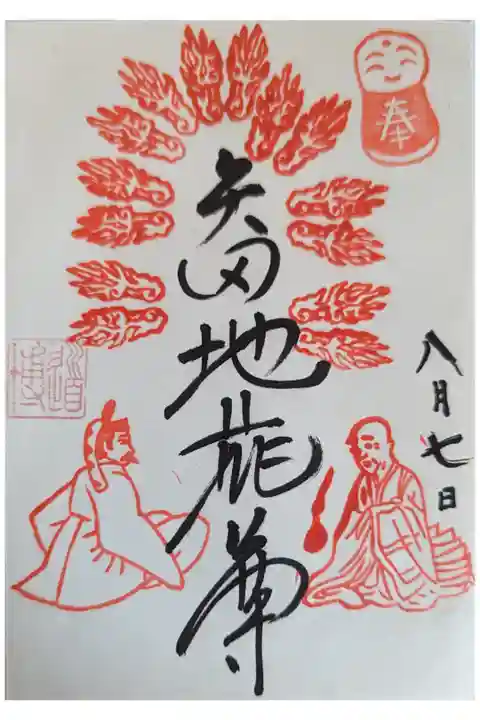 奉
八月七日
矢田地蔵尊